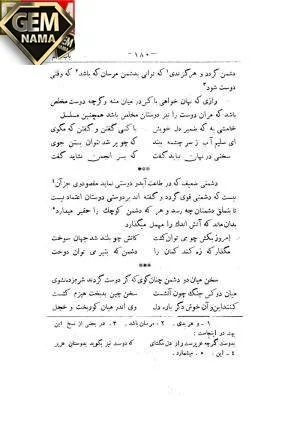 GEM
NAMA
- ۱۸۰ -
دشمن گردد و هر گزندی۱ که توانی بدشمن مرسان که باشد۲ که وقتی
دوست شود۳
رازی که نهان خواهی با کس در میان منه و گرچه دوست مخلص
باشد که مر آن دوست را نیز دوستان مخلص باشد همچنین مسلسل
خامشی به که ضمیر دل خویش با کسی گفتن و گفتن که مگوی
ای سلیم آب ز سر چشمه ببند که چو پر شد نتوان بستن جوی
سخنی در نهان نباید گفت که بسر انجمن نشاید گفت
***
دشمنی ضعیف که در طاعت آید و دوستی نماید مقصود وی جز آن۱
نیست که دشمنی قوی گردد و گفته اند بر دوستی دوستان اعتماد نیست
تا بتملق دشمنان چه رسد و هر که دشمن کوچک را حقیر میدارد۴
بدان ماند که آتش اندک را مهمل میگذارد
امروز بکش چو می توان کشت کاتش چو بلند شد جهان سوخت
مگذار که زه کند کمان را دشمن که بتیر می توان دوخت
***
سخن میان دو دشمن چنان گوی که گر دوست گردند شرم زده نشوی
میان دو کس جنگ چون آتشست سخن چین بدبخت هیزم کشست
کنند این و آن خوش دگر باره دل وی اندر میان کوربخت و خجل
۱ - و هر بدی . ۲ - مرسان باشد . ۳ - در بعضی از نسخ این
بیت در اینجاست :
بدوست گرچه عزیزست راز دل مگشای که دوست نیز بگوید بدوستان عزیز
۴ - این . ۵ - میشمارد .